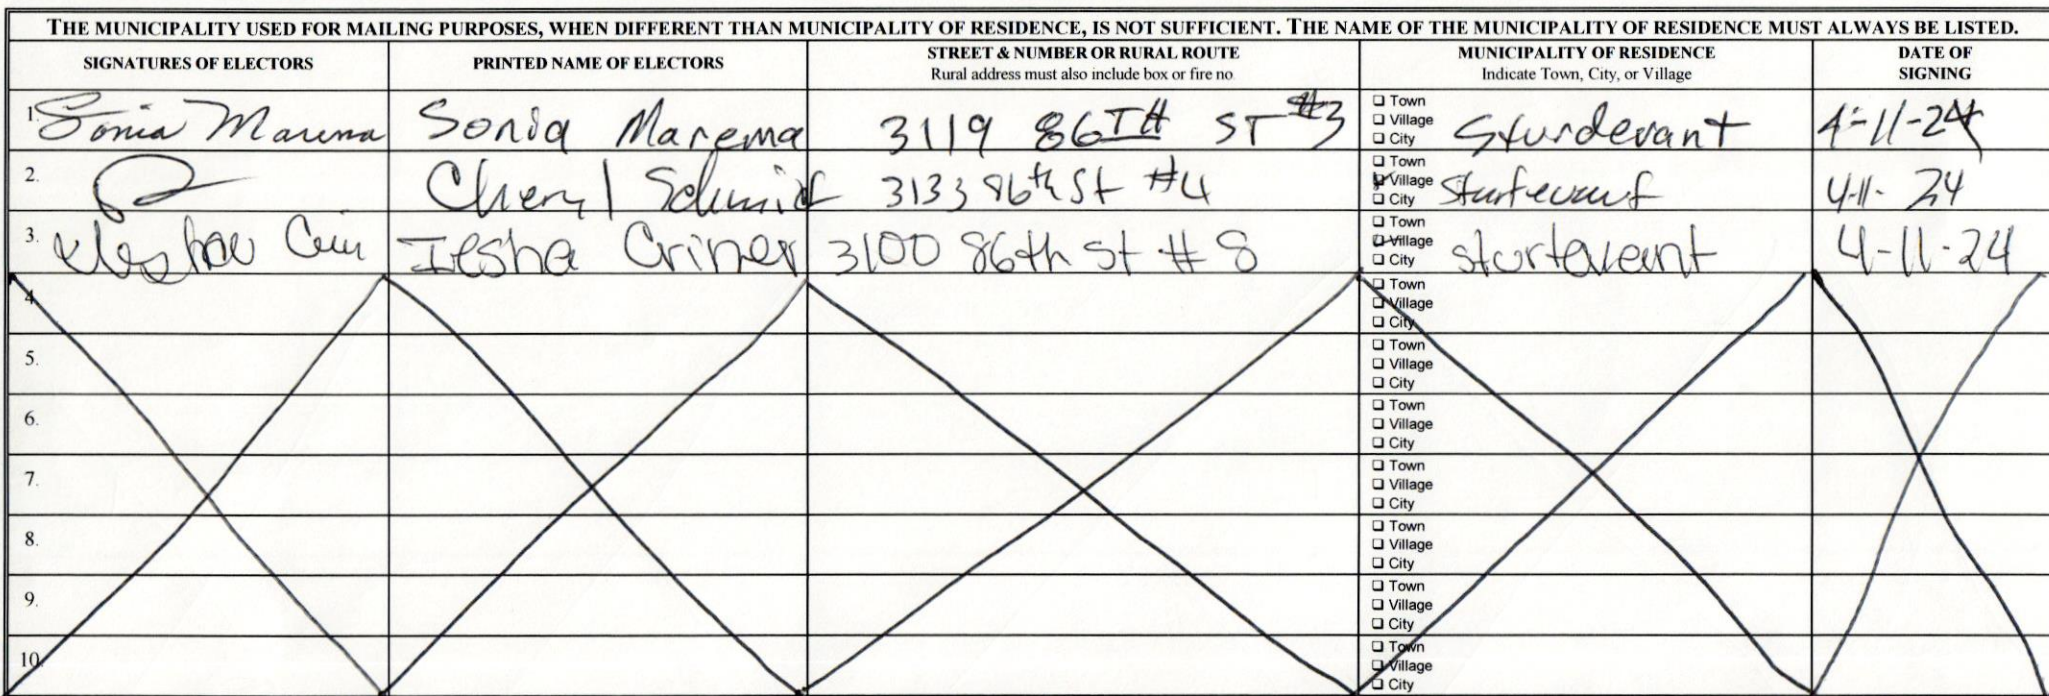 THE MUNICIPALITY USED FOR MAILING PURPOSES, WHEN DIFFERENT THAN MUNICIPALITY OF RESIDENCE, IS NOT SUFFICIENT. THE NAME OF THE MUNICIPALITY OF RESIDENCE MUST ALWAYS BE LISTED.
SIGNATURES OF ELECTORS PRINTED NAME OF ELECTORS STREET & NUMBER OR RURAL ROUTE MUNICIPALITY OF RESIDENCE DATE OF SIGNING
Rural address must also include box or fire no Indicate Town, City, or Village
1. Sonia Marema Sonia Marema 3119 86TH ST #3 ❑ Town ❑ Village ❑ City Sturdevant 4-11-24
2. Cheryl Schmidt 3133 86th St #4 ❑ Town ❑ Village ❑ City Sturtevant 4-11-24
3. Iesha Criner 3100 86th St # 8 ❑ Town ❑ Village ❑ City sturtevant 4-11-24
4. ❑ Town ❑ Village ❑ City
5. ❑ Town ❑ Village ❑ City
6. ❑ Town ❑ Village ❑ City
7. ❑ Town ❑ Village ❑ City
8. ❑ Town ❑ Village ❑ City
9. ❑ Town ❑ Village ❑ City
10. ❑ Town ❑ Village ❑ City